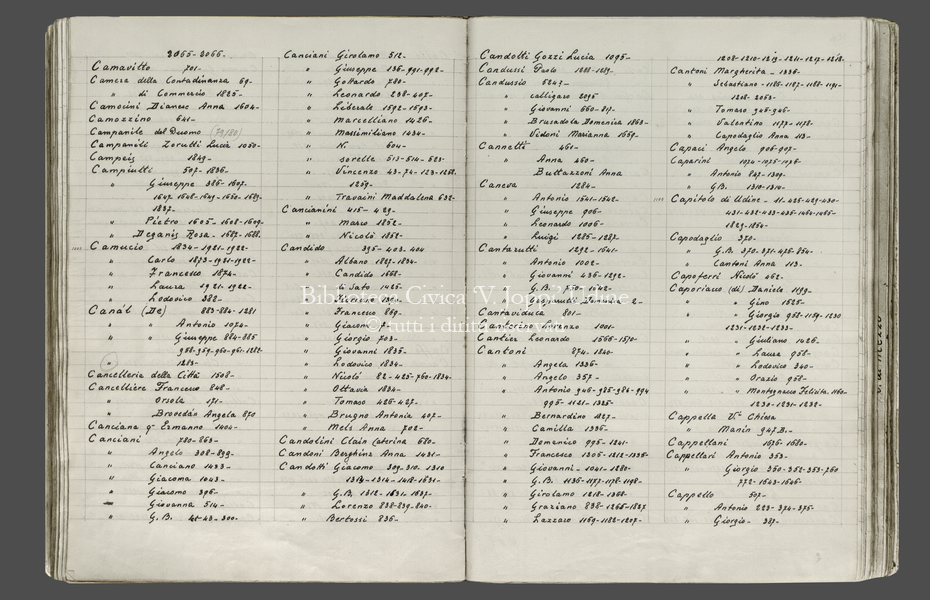 2065-2066-
Camavitto 701-
Camera della Contadinanza 69-
" di Commercio 1825-
Camocini Dianese Anna 1604-
Camozzino 641-
Campanile del Duomo (79/80)
Campaniti Zorutti Lucia 1050-
Campeis 1849-
Campiutti 507-1836-
" Giuseppe 386-1607-
1647-1648-1649-1650-1689-
1837-
" Pietro 1605-1608-1609-
" Deganis Rosa-1687-1688-
Camucio 1834-1921-1922-
" Carlo 1873-1921-1922-
" Francesco 1874-
" Laura 1921-1922-
" Lodovico 388-
Canàl (De) 883-884-1281
" " Antonio 1074-
" " Giuseppe 884-885
958-959-960-961-1282-
" 1283-
Cancelleria della Città 1508-
Cancelliere Francesco 848-
" Orsola 171-
" Brovedan Angela 870
Canciana q. Ermanno 1404-
Canciani 780-863-
" Angelo 308-899-
" Canciano 1433-
" Giacoma 1043-
" Giacomo 396-
" Giovanna 514-
" G.B. 42-43-300-
Canciani Girolamo 512-
" Giuseppe 136-991-992-
" Gottardo 780-
" Leonardo 238-407-
" Liberale 1692-1693-
" Marcelliano 1426-
" Massimiliano 1434-
" N. 604-
" sorelle 513-514-523-
" Vincenzo 43-74-123-1258-
1259-
" Travaini Maddalena 632-
Cancianini 415-429-
" Marco 1852-
" Nicolò 1852-
Candido 395-403-404
" Albano 1827-1834-
" Candido 1668-
" Donato 1425-
" Francesco 869-
" Giacomo
" Giorgio 703-
" Giovanni 1835-
" Lodovico 1834-
" Nicolò 82-425-760-1834-
" Ottavia 1834-
" Tomaso 426-427-
" Brugno Antonia 407-
" Mels Anna 702-
Candolini Clain Caterina 680-
Candoni Berghinz Anna 1431-
Candotti Giacomo 309-310-1310
1313-1314-1418-1631-
" G.B. 1312-1631-1637-
" Lorenzo 838-839-840-
" Bertossi 836-
Candotti Gozzi Lucia 1095-
Candussi Paolo 1288-1289-
Candussio 5243-
" calligaro 2095
" Giovanni 660-817-
" Brusadola Domenica 1860-
" Vidoni Marianna 1659-
Cannetti 461-
" Anna 460-
" Buttazzoni Anna
Caneva 1284-
" Antonio 1541-1542-
" Giuseppe 906-
" Leonardo 1006-
" Luigi 1285-1287-
Cantarutti 1292-1641-
" Antonio 1002-
" Giovanni 436-1292-
" G.B. 150-1642-
Cantaviduca 801-
Lorenzo 1001-
Cantier Leonardo 1566-1570-
Cantoni 874-1240-
" Angela 1336-
" Angelo 357-
" Antonio 946-985-986-994
995-1121-1325-
" Bernardino 1827-
" Camilla 1336-
" Domenico 995-1241-
" Francesco 1305-1212-1335-
" Giovanni-1041-1280-
" G.B. 1136-1177-1178-1198-
" Girolamo 1218-1368-
" Graziano 838-1265-1827
" Lazzaro 1169-1182-1207-
1208-1210-1213-1211-1217-1218-
Cantoni Margherita-1336-
" Sebastiano-1186-1187-1188-1191-
1208-2063-
" Tomaso 945-946-
" Valentino 1177-1178-
" Capodaglio Anna 113-
Capaci Angelo 906-907-
Caparini 1074-1075-1076-
" Antonio 847-1309-
" G.B. 1310-1314-
Capitolo di Udine-11-425-429-430-
431-432-433-435-1484-1485-
1823-1854-
Capodaglio 370-
" G.B. 370-371-476-854-
" Cantoni Anna 113-
Capoferri Nicolò 462-
Caporiaco (di) Daniele 1199-
" " Gino 1525-
" " Giorgio 958-1159-1230
1231-1232-1233-
" " Giuliano 1426-
" " Laura 958-
" " Lodovico 340-
" " Orazio 958-
" " Montegnacco Felicita-1160-
1230-1231-1232-
Cappella V. Chiesa
" Manin 947.B.-
Cappellani 1676-1680-
Cappellari Antonio 353-
" Giorgio 350-352-353-760
772-1643-1646-
Cappello 507-
" Antonio 223-374-375-
" Giorgio-387-
Biblioteca Civica 'V. Joppi' Udine
© tutti i diritti riservati